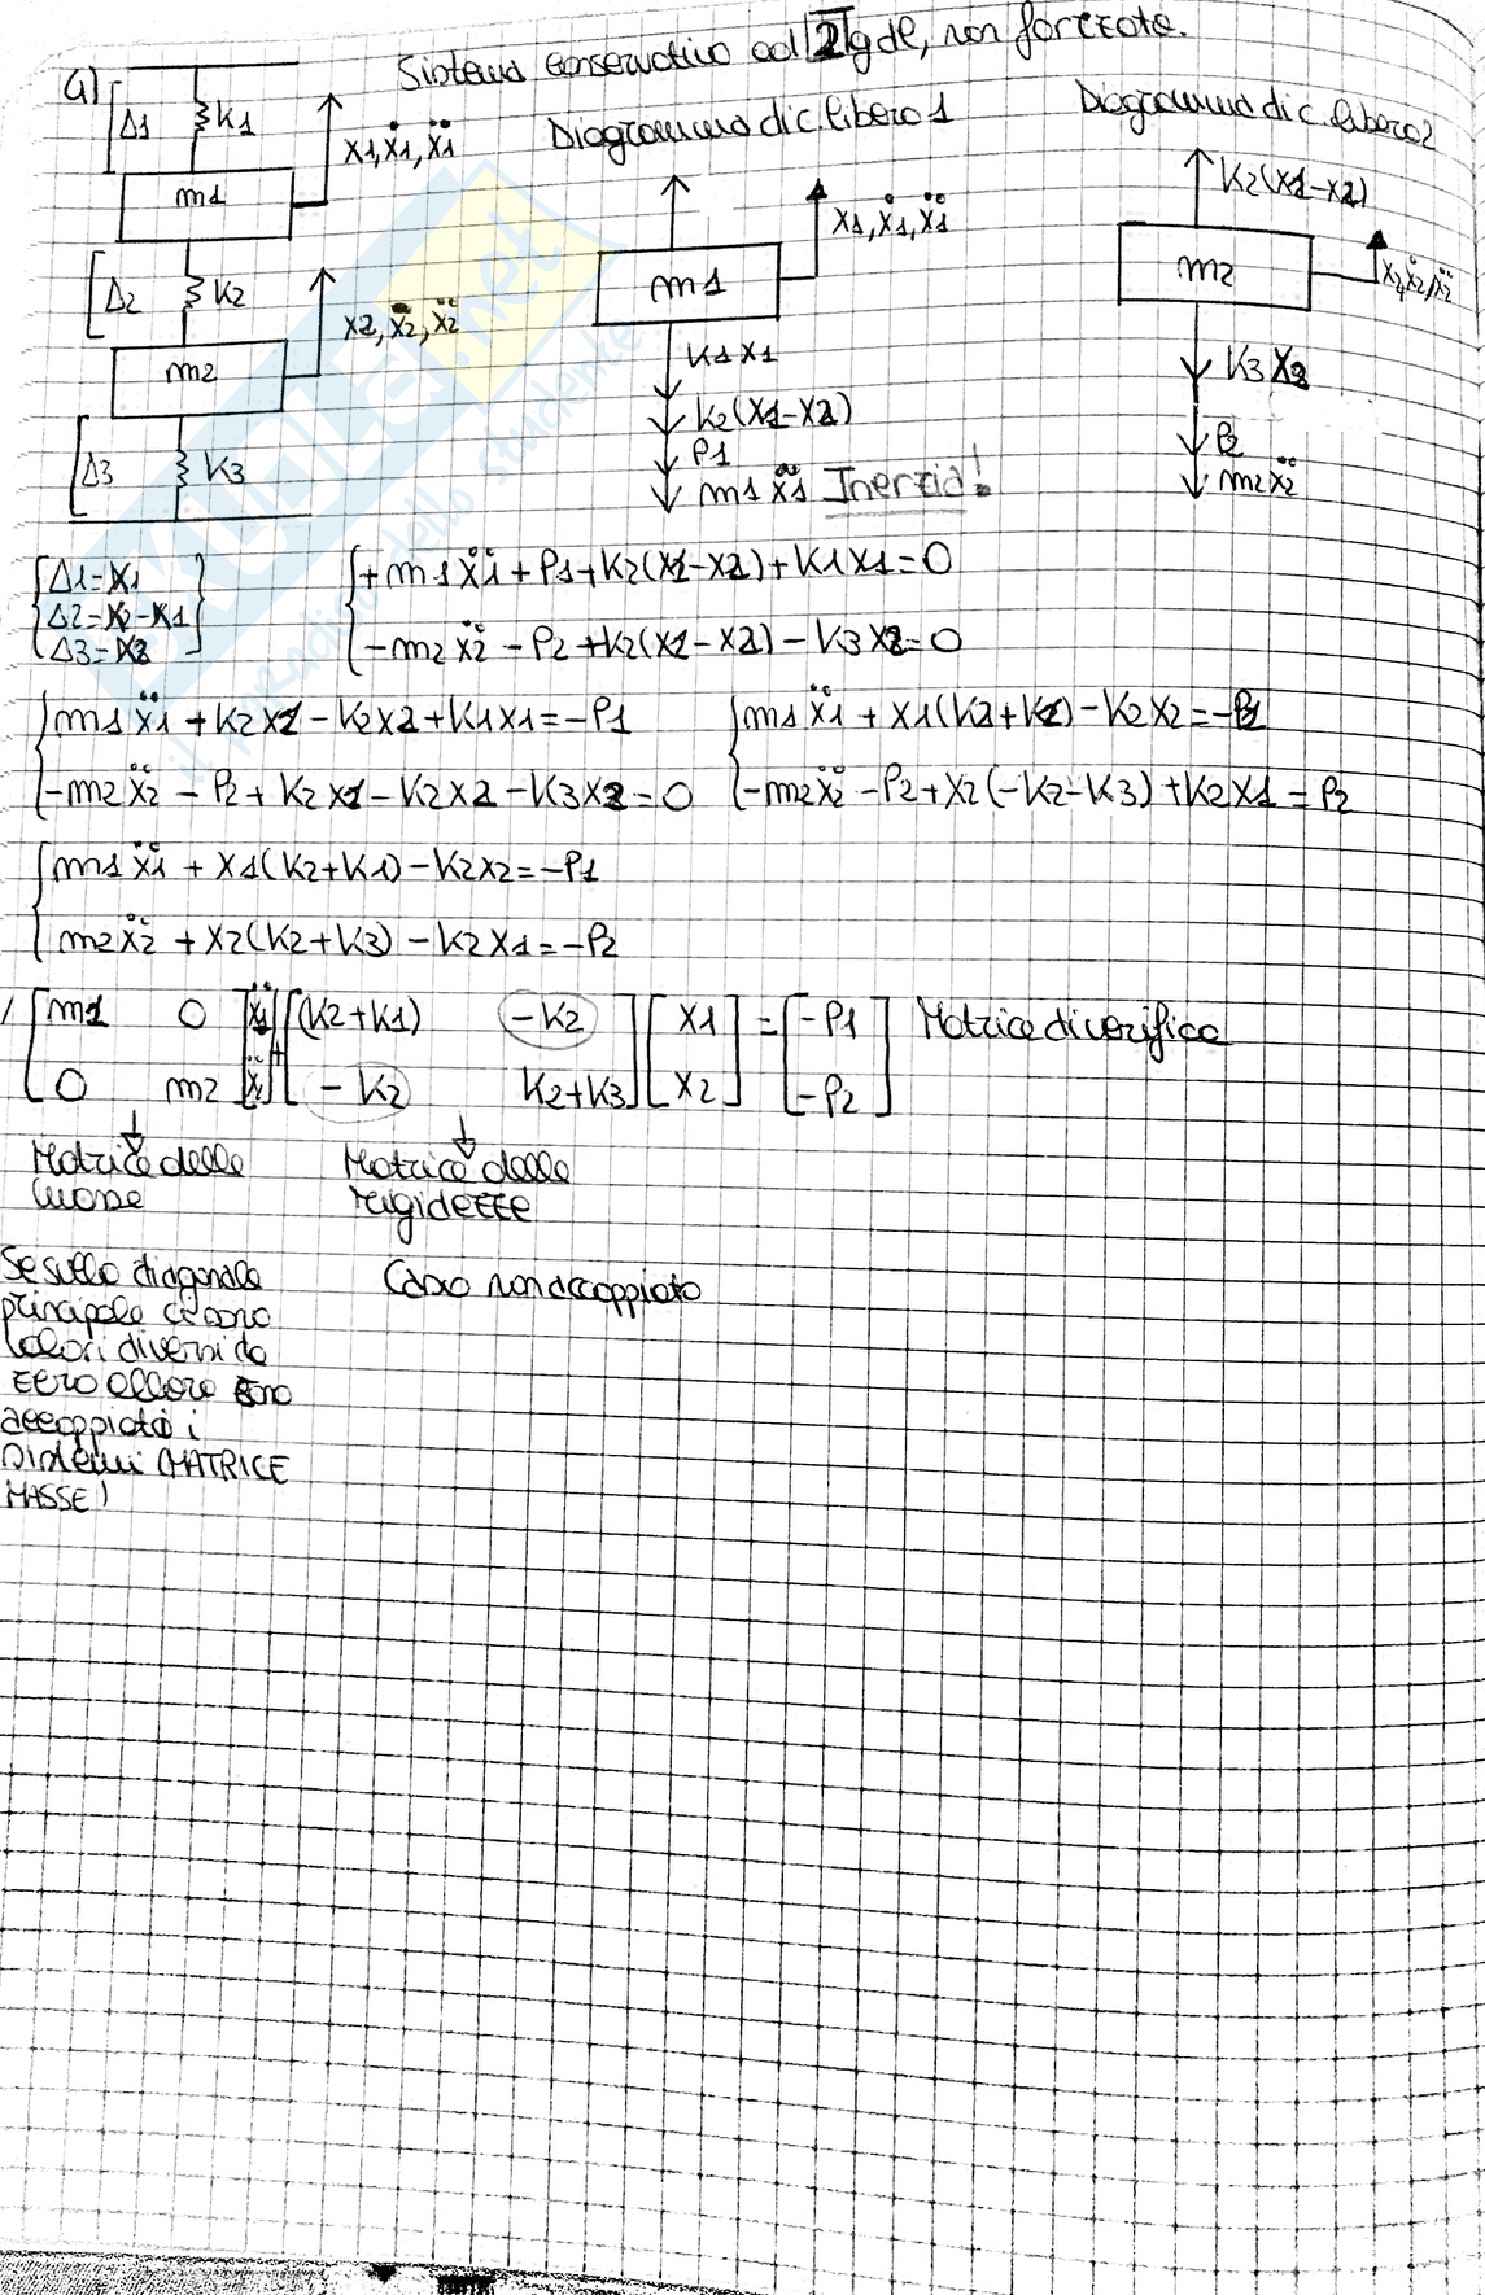 Sistema conservativo ad 2 gdl, non forzato.
a)
Δ1 K1
x1, ẋ1, ẍ1
m1
Δ2 K2
x2, ẋ2, ẍ2
m2
Δ3 K3
Diagramma di c. libero 1
x1, ẋ1, ẍ1
m1
K1 x1
K2(x1-x2)
P1
m1 ẍ1 Inerzia!
Diagramma di c. libero 2
K2(x1-x2)
m2
x2, ẋ2, ẍ2
K3 x2
P2
m2 ẍ2
Δ1=x1
Δ2=x2-x1
Δ3=x2
+m1 ẍ1 + P1 + K2(x1-x2) + K1 x1 = 0
-m2 ẍ2 - P2 + K2(x1-x2) - K3 x2 = 0
m1 ẍ1 + K2 x1 - K2 x2 + K1 x1 = -P1
-m2 ẍ2 - P2 + K2 x1 - K2 x2 - K3 x2 = 0
m1 ẍ1 + x1(K2+K1) - K2 x2 = -P1
-m2 ẍ2 - P2 + x2(-K2-K3) + K2 x1 = P2
m1 ẍ1 + x1(K2+K1) - K2 x2 = -P1
m2 ẍ2 + x2(K2+K3) - K2 x1 = -P2
[m1 0] [ẍ1] + [(K2+K1) -K2] [x1] = [-P1] Matrice di verifica
[0 m2] [ẍ2] [-K2 K2+K3] [x2] [-P2]
Matrice delle
masse
Matrice delle
rigidezze
Se sulla diagonale
principale ci sono
valori diversi da
zero allora sono
accoppiati i
sistemi (MATRICE
MASSE)
Caso non accoppiato